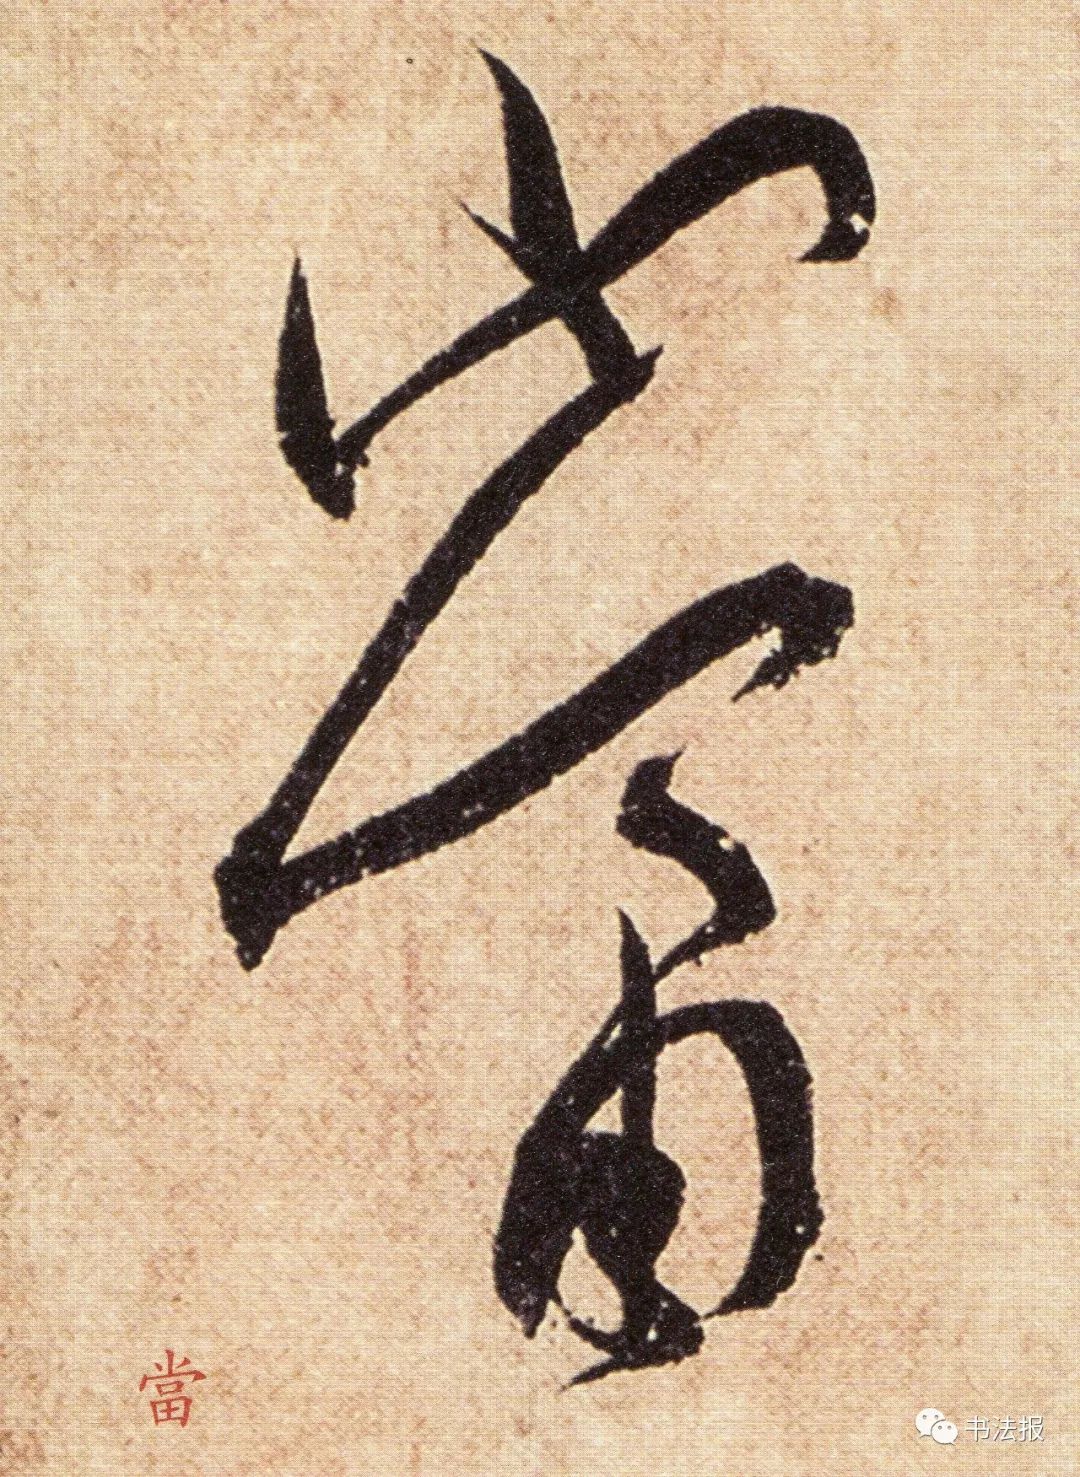 當
當
书法报